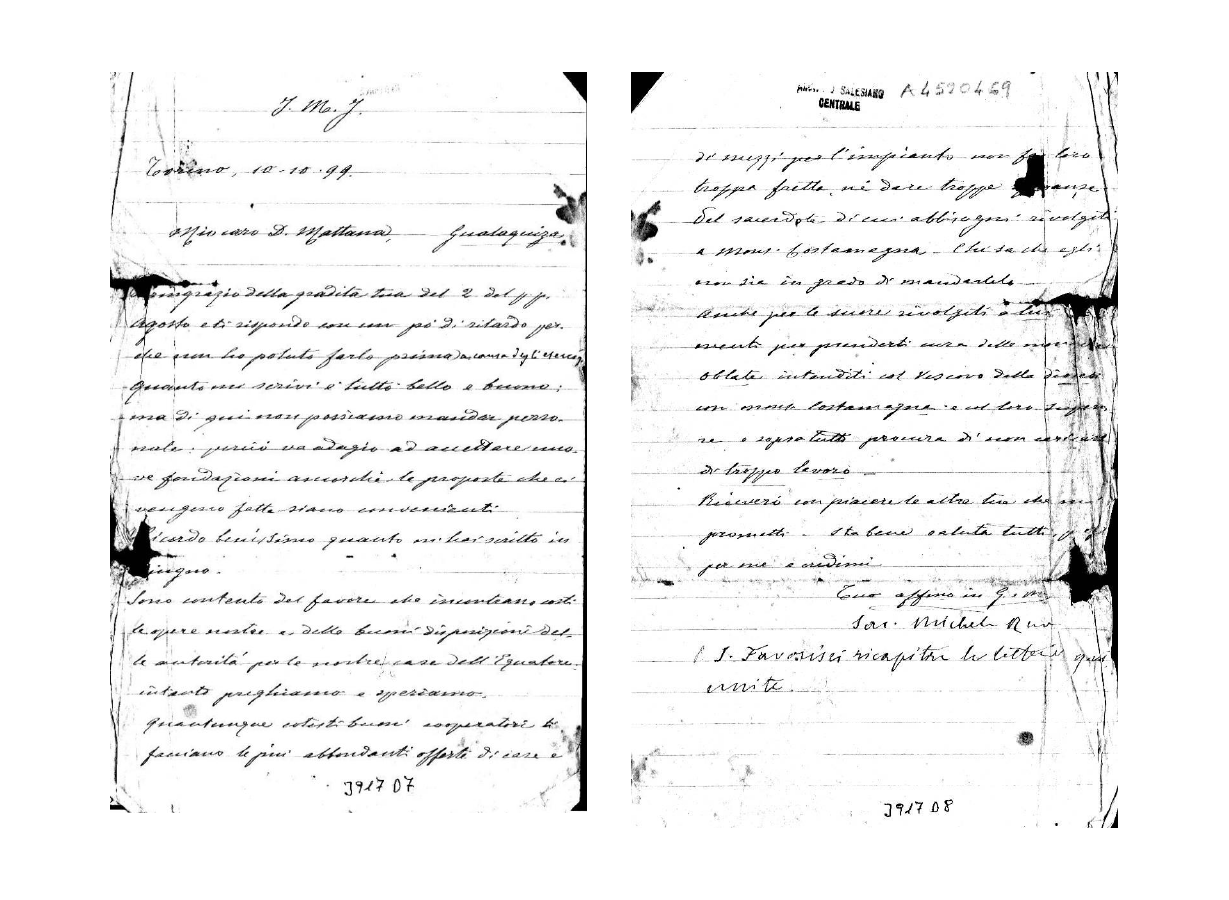 J. M. J.
Torino, 10-10-99.
Mio caro D. Mattana, Gualaquiza
ringrazio della gradita tua del 2 del p. p.
Agosto e ti rispondo con un pó di ritardo per
che non ho potuto farlo prima a causa degli esercizi
quanto mi scrivi è tutto bello e buono;
ma di qui non possiamo mandar perso
nale; perciò va adagio ad accettare nuo
ve fondazioni ancorchè le proposte che ci
vengono fatte siano convenienti
Ricordo benissimo quanto mi hai scritto in
giugno.
Sono contento del favore che incontrano costì
le opere nostre e delle buone disposizioni del
le autorità per le nostre case dell'Equatore.
intanto preghiamo e speriamo.
quantunque cotesti buoni cooperatori ti
facciano le più abbondanti offerte di case e
J917 D7
SALESIANO
CENTRALE
A4590469
di mezzi per l'impianto non far loro
troppa fretta, nè dare troppe speranze
Del sacerdote di cui abbisogni rivolgiti
a Mons. Costamagna - Chi sa che egli
non sia in grado di mandartelo
Anche per le suore rivolgiti a lui
per prenderti cura delle
Oblate intenditi col Vescovo della
con mons Costamagna e col loro superio
re e sopra tutto procura di non caricarti
di troppo lavoro -
Riceverò con piacere le altre tue che mi
prometti - Sta bene saluta tutti
per me e credimi
Tuo affmo in G. e M.
Sac. Michele Rua
S. Favorisci ricapitar le lettere qui
unite.
J917 D8